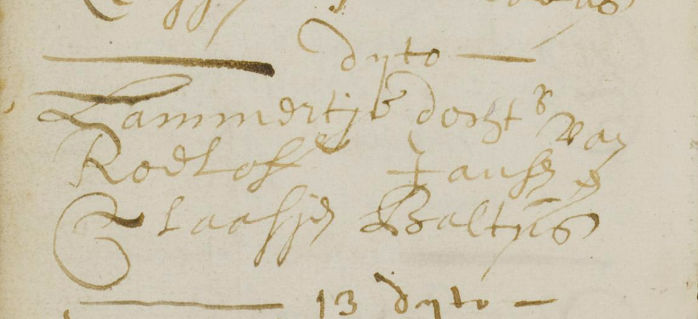 dyto
Lammertje docht r van
Roelof Jansen &
Claasje Baltus
13 dyto